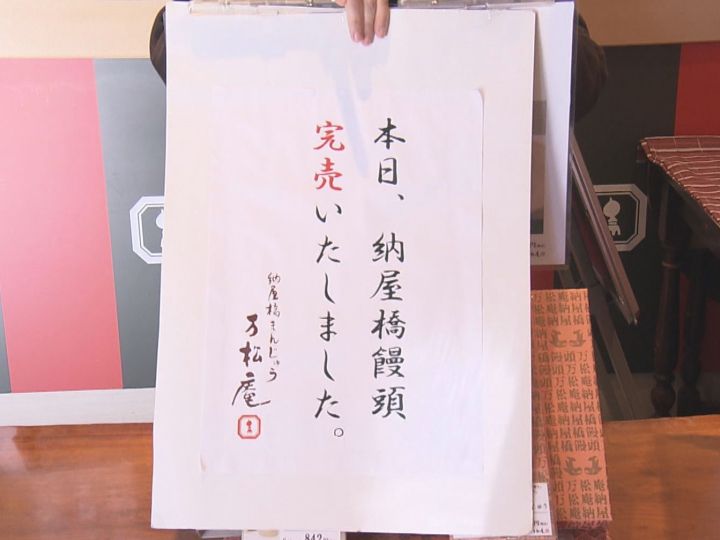 本日、納屋橋饅頭
完売いたしました。
納屋橋まんじゅう
万松庵
万松庵納屋橋饅頭
842